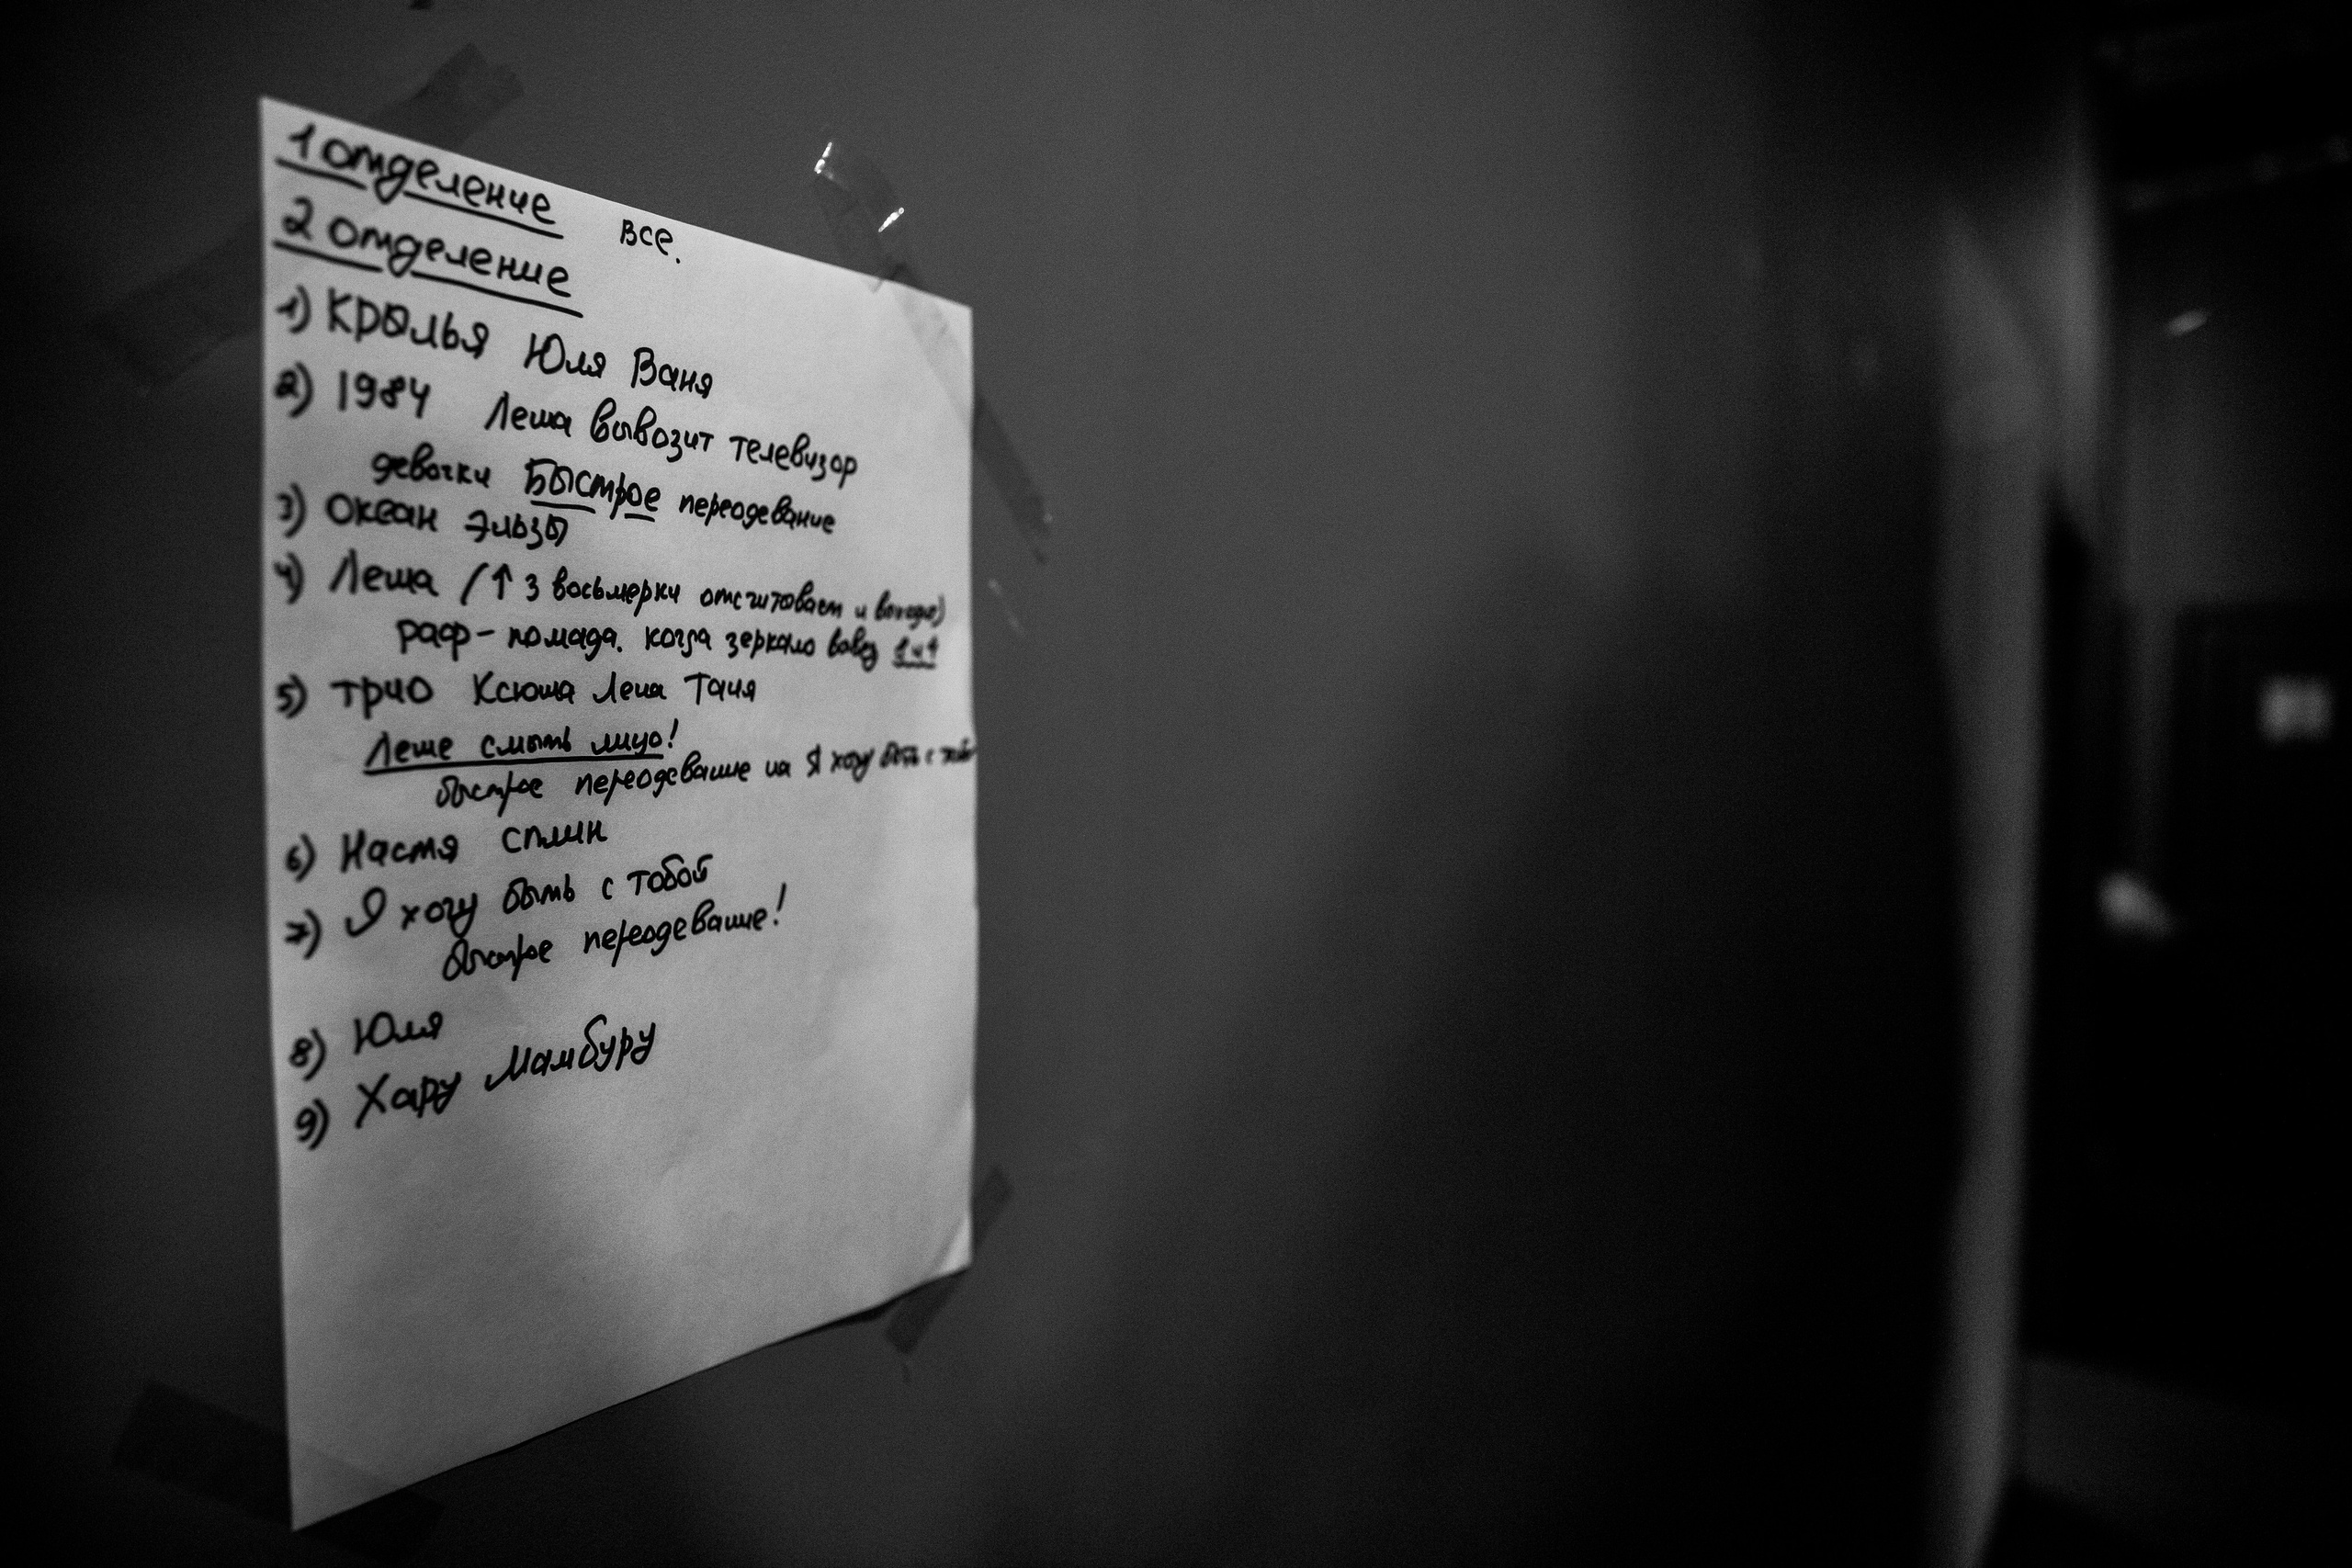 1 отделение все.
2 отделение
1) Крылья Юля Ваня
2) 1984 Леша вывозит телевизор
девочки Быстрое переодевание
3) Океан Эльзы
4) Леша (↑ 3 восьмерки отсчитоваем и
раф - помада. когда зеркало
5) трио Ксюша Лена Таня
Леше смыть лицо!
быстрое переодевание на Я хочу быть с
6) Настя сплин
7) Я хочу быть с тобой
быстрое переодевание!
8) Юля
9) Хару Мамбуру